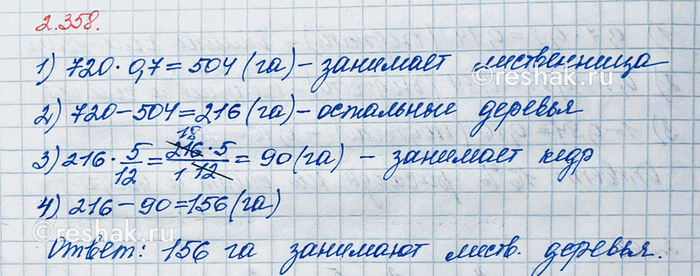 2.358.
1) 720 · 0,7 = 504 (га) – занимает лиственница
2) 720 – 504 = 216 (га) – остальные деревья
3) 216 · 5/12 = 216 · 5 / 12 = 90 (га) – занимает кедр
18
1
4) 216 – 90 = 156 (га)
Ответ: 156 га занимают листв. деревья.
©reshak.ru
©reshak.ru